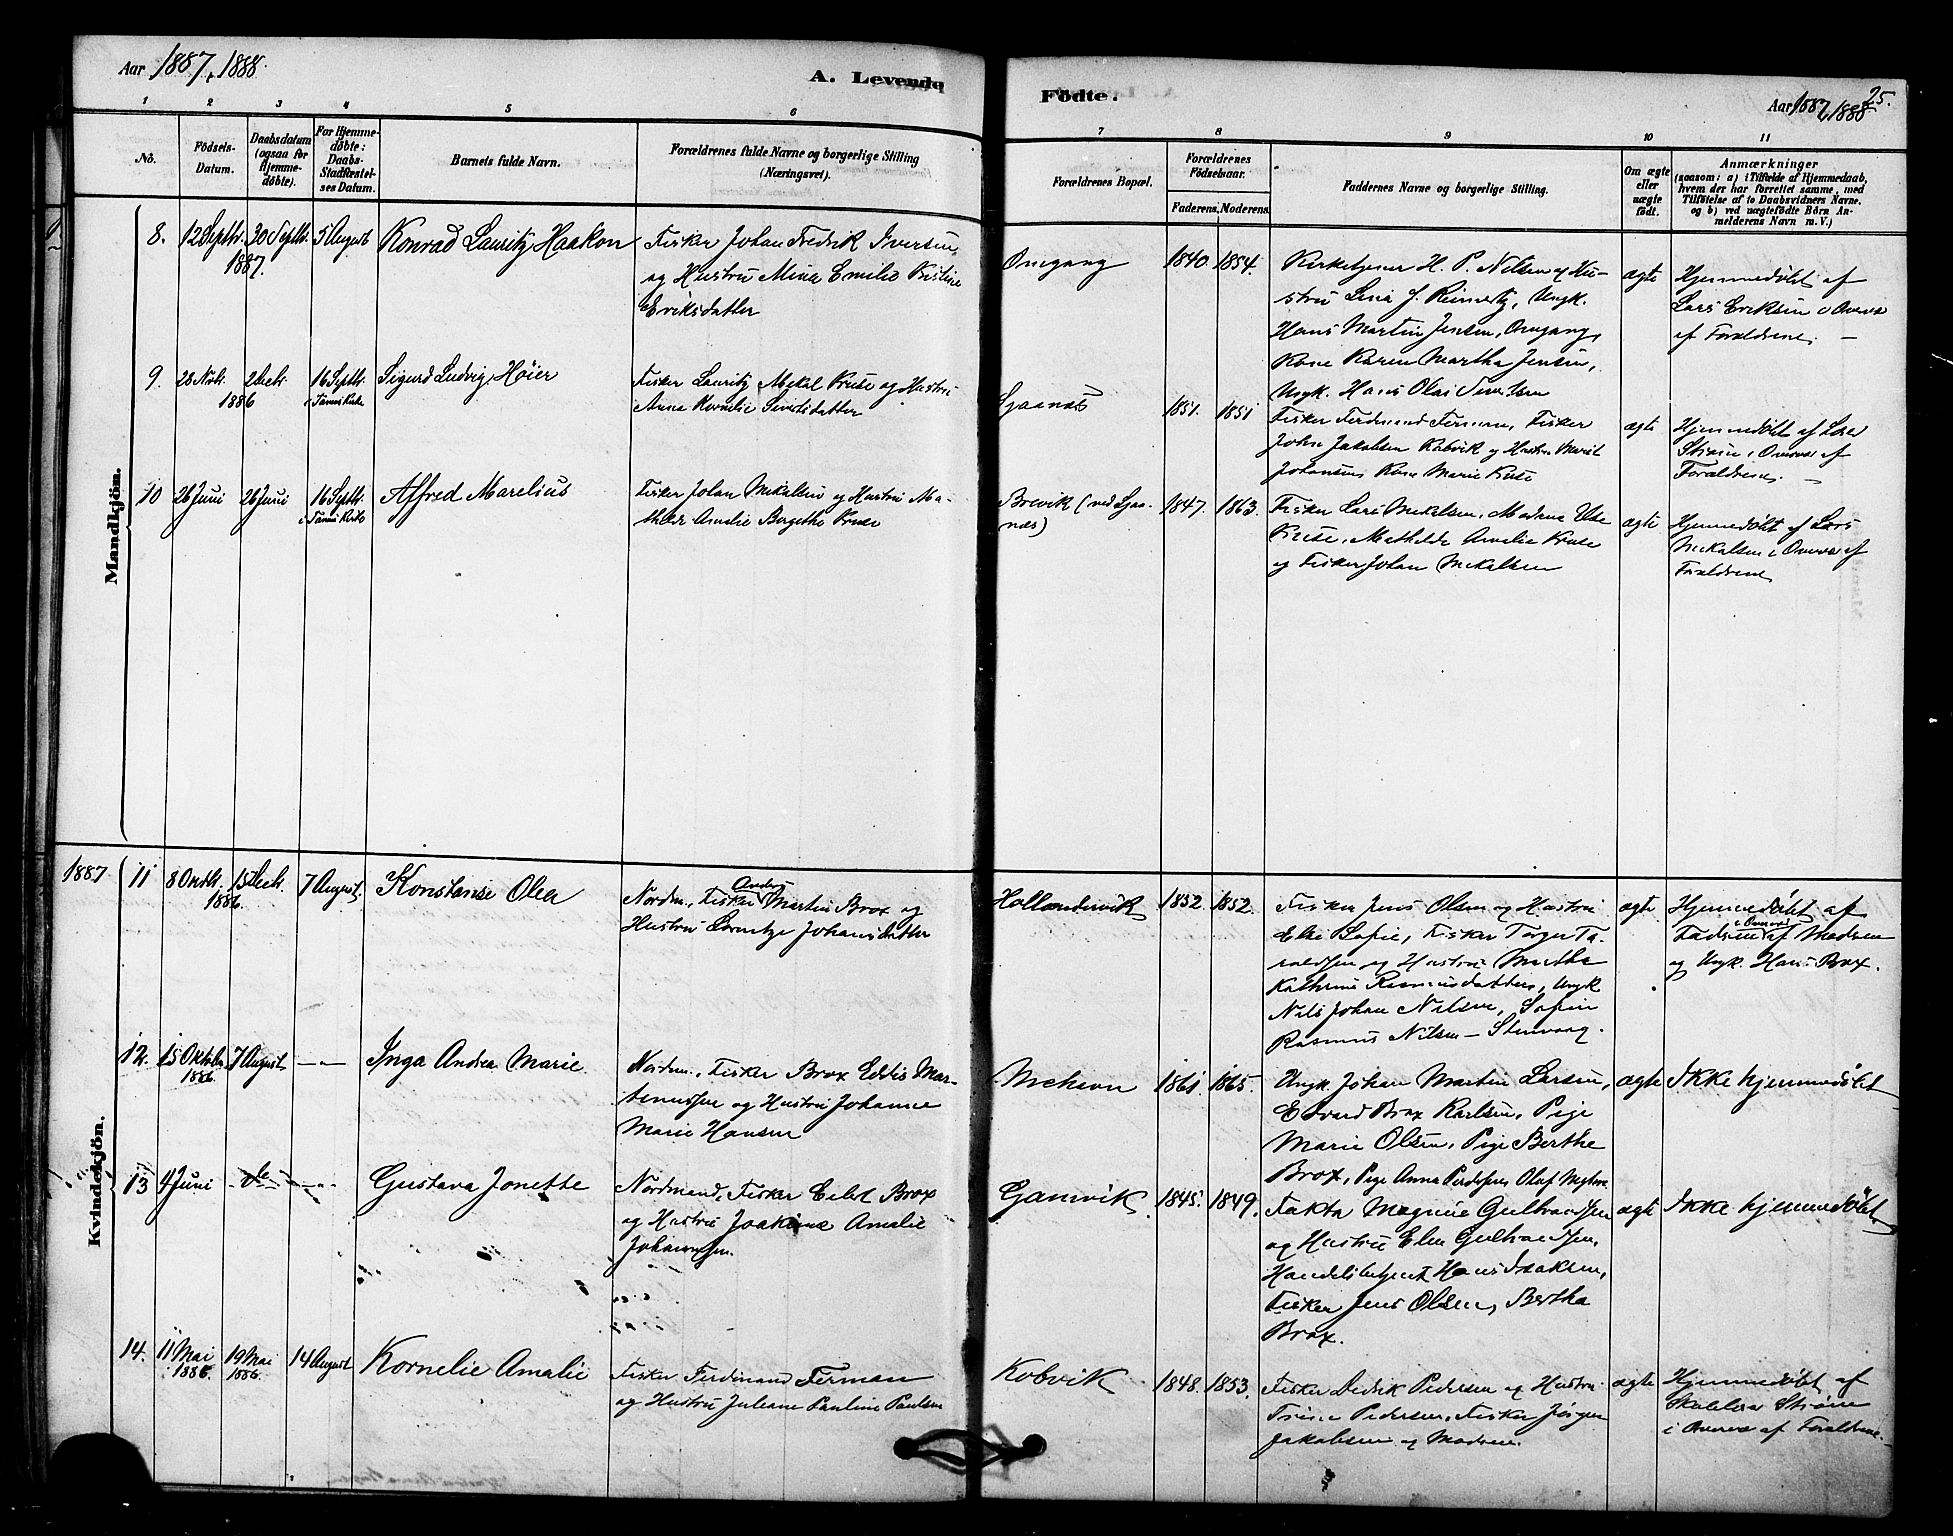 Aar 1887, 1888.
A. Levende
Födte.
Aar 1887, 1888
25.
1
2
3
4
5
6
7
8
9
10
11
No.
Födsels-
Datum.
Daabsdatum
(ogsaa for
Hjemme-
døbte).
For Hjemme-
døbte:
Daabs-
Stadfæstel-
ses Datum.
Barnets fulde Navn.
Forældrenes fulde Navne og borgerlige Stilling
(Næringsvei).
Forældrenes Bopæl.
Forældrenes
Födselsaar.
Faderens. Moderens.
Faddernes Navne og borgerlige Stilling.
Om ægte
eller
uægte
født.
Anmærkninger
(saasom: a) i Tilfælde af Hjemmedaab,
hvem der har forrettet samme, med
Tilføielse af to Daabsvidners Navne,
og b) ved uægtefödte Börn An-
melderens Navn m. V.)
Mandkjön.
8.
12 Septbr.
1887.
30 Septbr.
5 August
Konrad Lauritz Haakon
Fisker Johan Fredrik Iversen,
og Hustru Mina Emilie Kristine
Eriksdatter
Omgang
1840.
1854.
Kirketjener H. P. Nilsen og Hu-
stru Lina J. Reinertz, Ungk.
Hans Martin Jensen, Omgang,
Kone Karen Martha Jensen,
Ungk. Hans Olai Iversen
ægte
Hjemmedøbt af
Lars Eriksen i Overvær
af Forældrene. —
9.
28 Novbr.
1886
2 Decbr.
16 Septbr.
i Tanens Kirke
Sigurd Ludvig Höier
Fisker Lauritz Mekal Kruse og Hustru
Anna Kornelie Sivertsdatter
Sjaanæs
1851.
1851
Fisker Ferdinand Ferman, Fisker
John Jakobsen Kobvik og Hustru Marit
Johansen, Kone Marie Kruse
ægte
Hjemmedøbt af Lars
Strøm i Overvær af
Forældrene. —
10
26 Juni
26 Juni
16 Septbr.
i Tanens Kirke
Alfred Marelius
Fisker Johan Mikalsen og Hustru Ma-
thilde Amalie Bergethe Kruse
Brevik (ved Sjaa-
næs)
1847.
1863.
Fisker Lars Mekalsen, Madame Else
Kruse, Mathilde Amalie Kruse
og Fisker Johan Mekalsen
ægte
Hjemmedøbt af Lars
Mekalsen i Overvær af
Forældrene
1887
Kvindekjön.
11
8 Octbr.
1886.
15 Decbr.
7 August.
Konstanse Olea
Nordm., Fisker Anders Martin Brox og
Hustru Lorentze Johansdatter
Hollendervik
1852
1852.
Fisker Jens Olsen og Hustru
Else Sofie, Fisker Torger Ta-
raldsen og Hustru Marthe
Kathrine Rasmusdatter, Ungk
Nils Johan Nilsen, Sofie
Rasmus Nilsen — Stenvaag.
ægte
Hjemmedøbt af
Fadren i Overvær af Modren
og Ungk. Hans Brox.
12.
15 Oktober
1886.
7 August
— —
Inga Andrea Marie
Nordm., Fisker Brox Eddis Mar-
tinussen og Hustru Johanne
Marie Hansen
Mehavn
1861.
1865.
Ungk. Johan Martin Larsen,
Edvard Brox Karlsen, Pige
Marie Olsen, Pige Berthe
Brox, Pige Anna Pedersen, Olaf
ægte
Ikke hjemmedöbt
13
4 Juni
— do —
— —
Gustava Jonette
Nordmand, Fisker Edvt Brox
og Hustru Joakime Amalie
Johannesen.
Gamvik
1845.
1849.
Fakto Magnus Gulbrandsen
og Hustru Elen Gulbrandsen,
Handelsbetjent Hans Isaksen,
Fisker Jens Olsen, Bertha
Brox.
ægte
Ikke hjemmedöbt
14.
11 Mai
1886.
19 Mai
1886.
14 August
Kornelie Amalie
Fisker Ferdinand Ferman
og Hustru Juliane Pauline Paulsen
Kobvik
1848.
1853.
Fisker Didrik Pedersen og Hustru
Trine Pedersen, Fisker Jörgen
Jakobsen og Modren.
ægte
Hjemmedöbt af
Strøm
i Overvær af Forældrene.